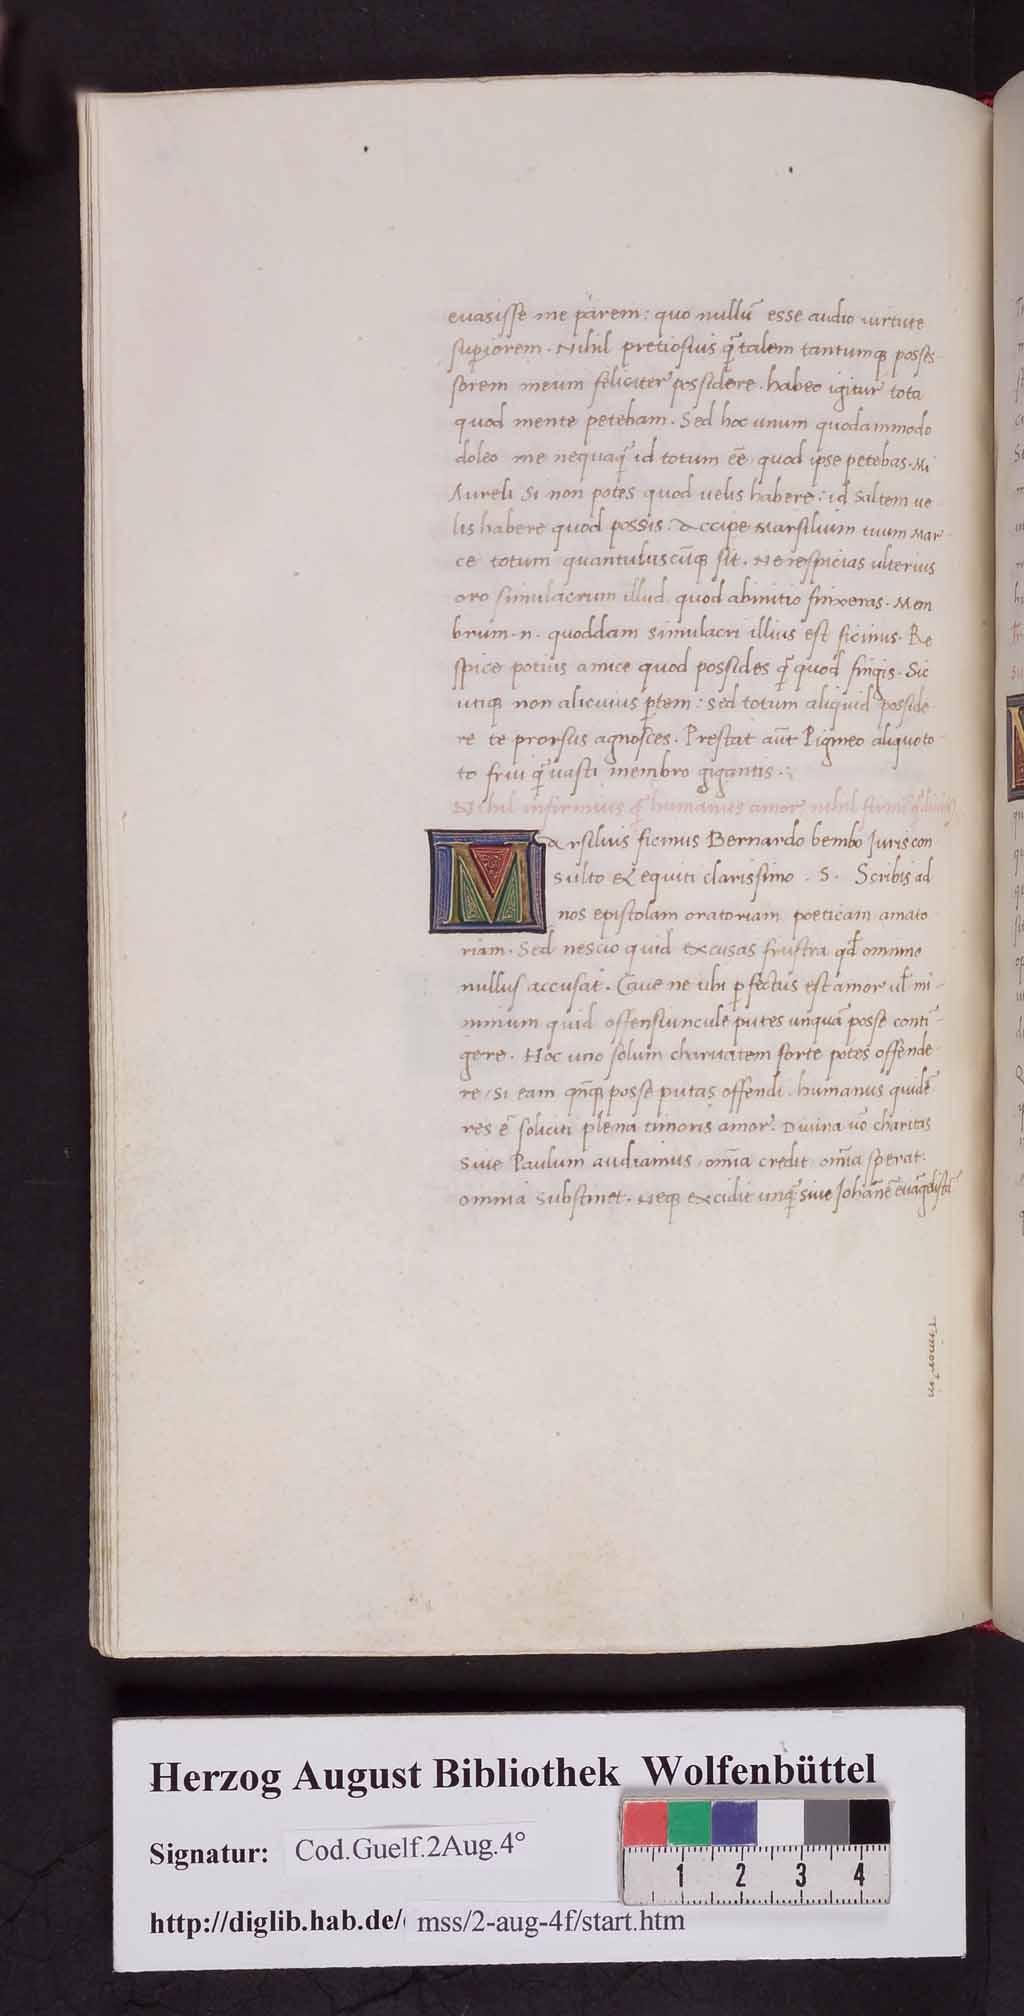 euasisse me parem: quo nullū esse audio uirtute
supiorem. Nihil pretiosius q̄ talem tantumq; posses-
sorem meum feliciter possidere. habeo igitur tota
quod mente petebam. Sed hoc unum quodammodo
doleo me nequaq̄ id totum eē quod ipse petebas. Mi
Aureli si non potes quod uelis habere: id saltem ue
lis habere quod possis: Accipe Marsilium tuum Mar-
ce totum quantuluscūq; sit. Ne respicias ulterius
oro simulacrum illud quod abinitio finxeras. Mem
brum .n. quoddam simulacri illius est ficinus. Re
spice potius amice quod possides q̄ quod fingis. Sic
utiq; non alicuius ptem: sed totum aliquid posside
re te prorsus agnosces. Prestat aūt Pigmeo aliquo to-
to frui q̄ uasti membro gigantis.
Nihil infirmius q̄ humanus amor nihil
Marsilius ficinus Bernardo bembo Juriscon
sulto & equiti clarissimo . S . Scribis ad
nos epistolam oratoriam poeticam amato
riam. Sed nescio quid excusas frustra qđ omnino
nullus accusat. Caue ne ubi pfectus est amor ul mi-
nimum quid offensiuncule putes unquā posse conti-
gere. Hoc uno solum charitatem forte potes offende
re/ si eam qn̄q; posse putas offendi. humanus quidē
res ē soliciti plena timoris amor. Diuina uo charitas
siue Paulum audiamus omīa credit omīa sperat.
omnia substinet. Neq; excidit unq̄ siue Johānē euāgelistā
Timor in
Herzog August Bibliothek Wolfenbüttel
Signatur: Cod.Guelf.2Aug.4°
1 2 3 4
http://diglib.hab.de/ mss/2-aug-4f/start.htm